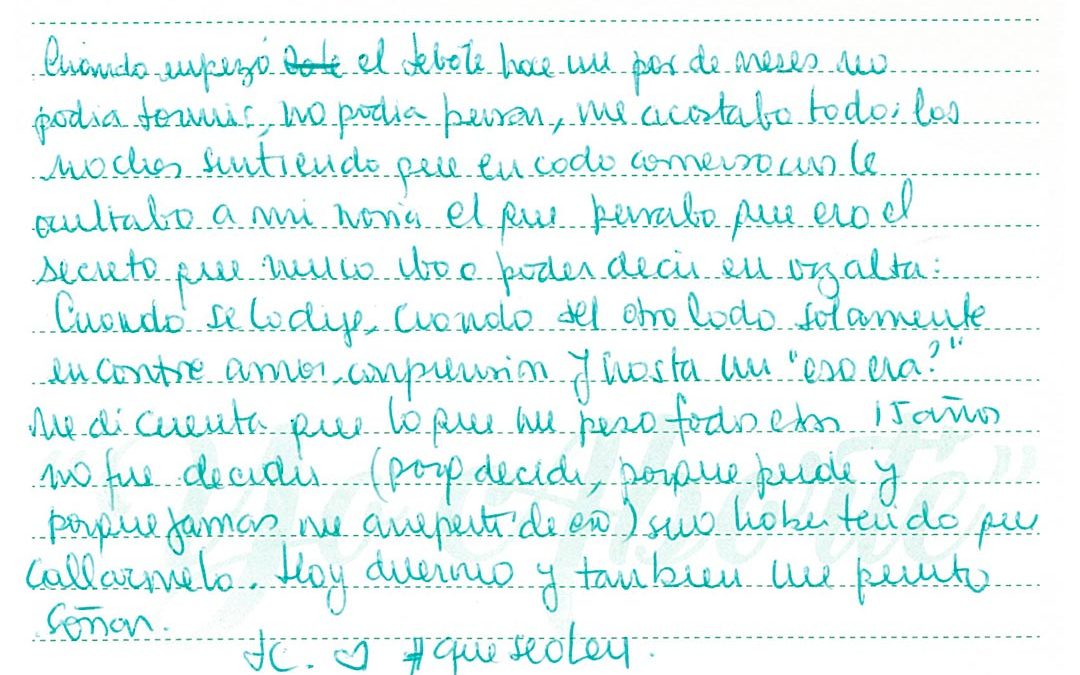 Cuando empezó este el debate hace un par de meses no
podia dormir, no podia pensar, me acostaba todas las
noches sintiendo que en cada conversacion le
ocultaba a mi novia el que pensaba que era el
secreto que nunca iba a poder decir en voz alta:
Cuando se lo dije, cuando del otro lado solamente
encontré amor, comprension y hasta un "eso era?"
Me di cuenta que lo que me peso todos esos 15 años
no fue decidir (porq decidi, porque pude y
porque jamas me arrepenti de eso) sino haber tenido que
callarmelo. Hoy duermo y tambien me permito
soñar.
JC. ♡ #queseaLey.
"Yo Aborté"